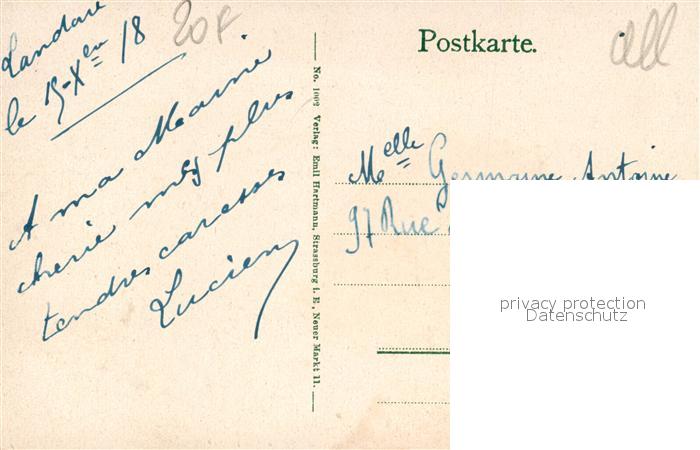 Landau
le 15-Xbre 18
20F
A ma Mamie
cherie mes plus
tendres caresses
Lucien
No. 1002 Verlag: Emil Hartmann, Strassburg i. E., Neuer Markt 11.
Postkarte.
Melle Germaine Antoine
97 Rue
privacy protection
Datenschutz